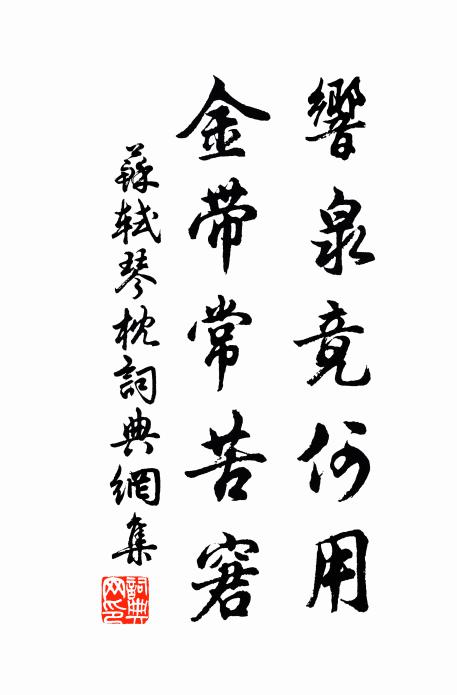 響泉竟何用
金帶常苦窘
蘇軾琴枕詞典網集
詞典網印